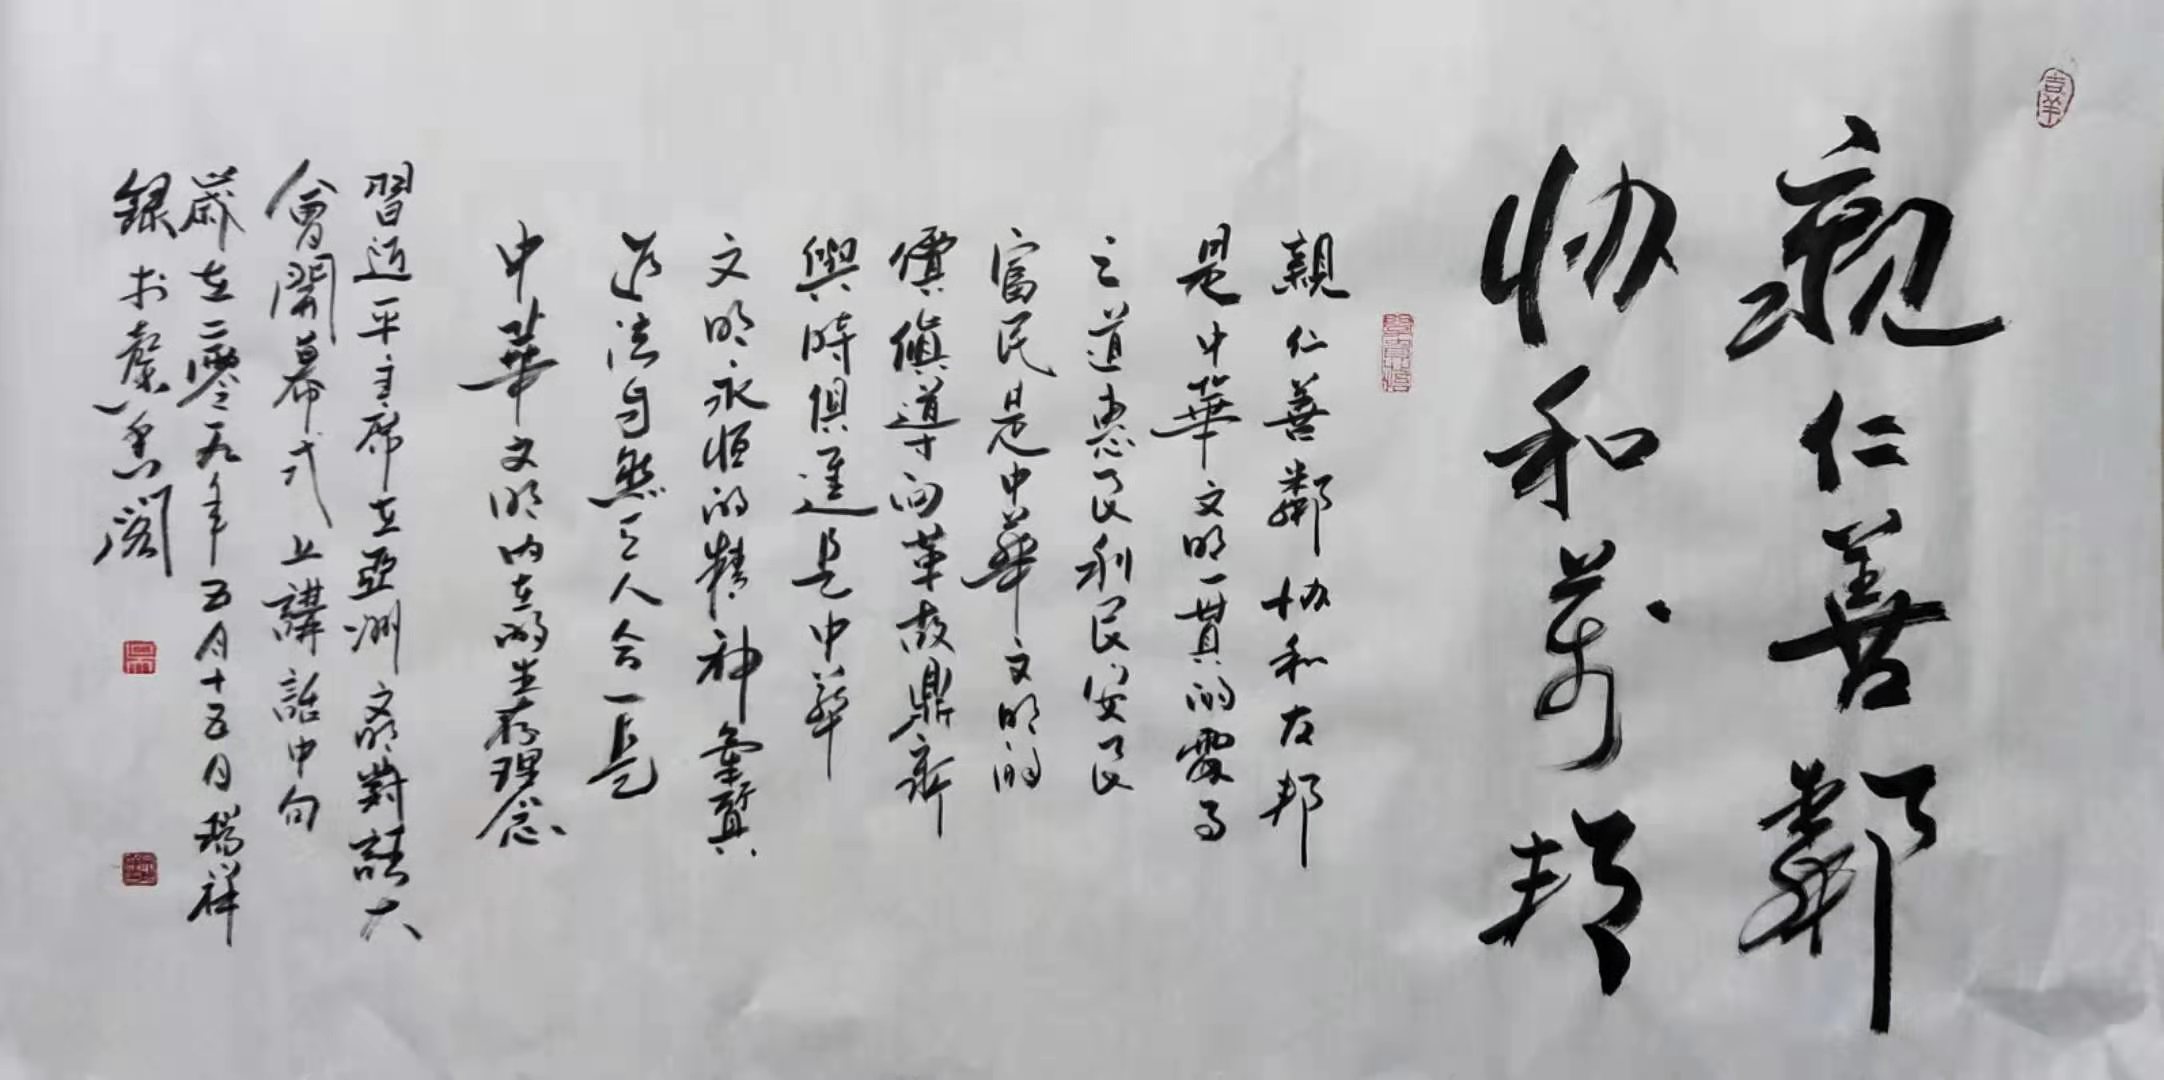 親仁善鄰
协和萬邦
親仁善鄰协和友邦
是中華文明一貫的處事
之道惠民利民安民
富民是中華文明的
價值導向革故鼎新
與時俱進是中華
文明永恒的精神氣質
道法自然天人合一是
中華文明内在的生存理念
習近平主席在亞洲文明對話大
會開幕式上講話中句
歲在二零一九年五月十五日瑞祥
録於馨香閣